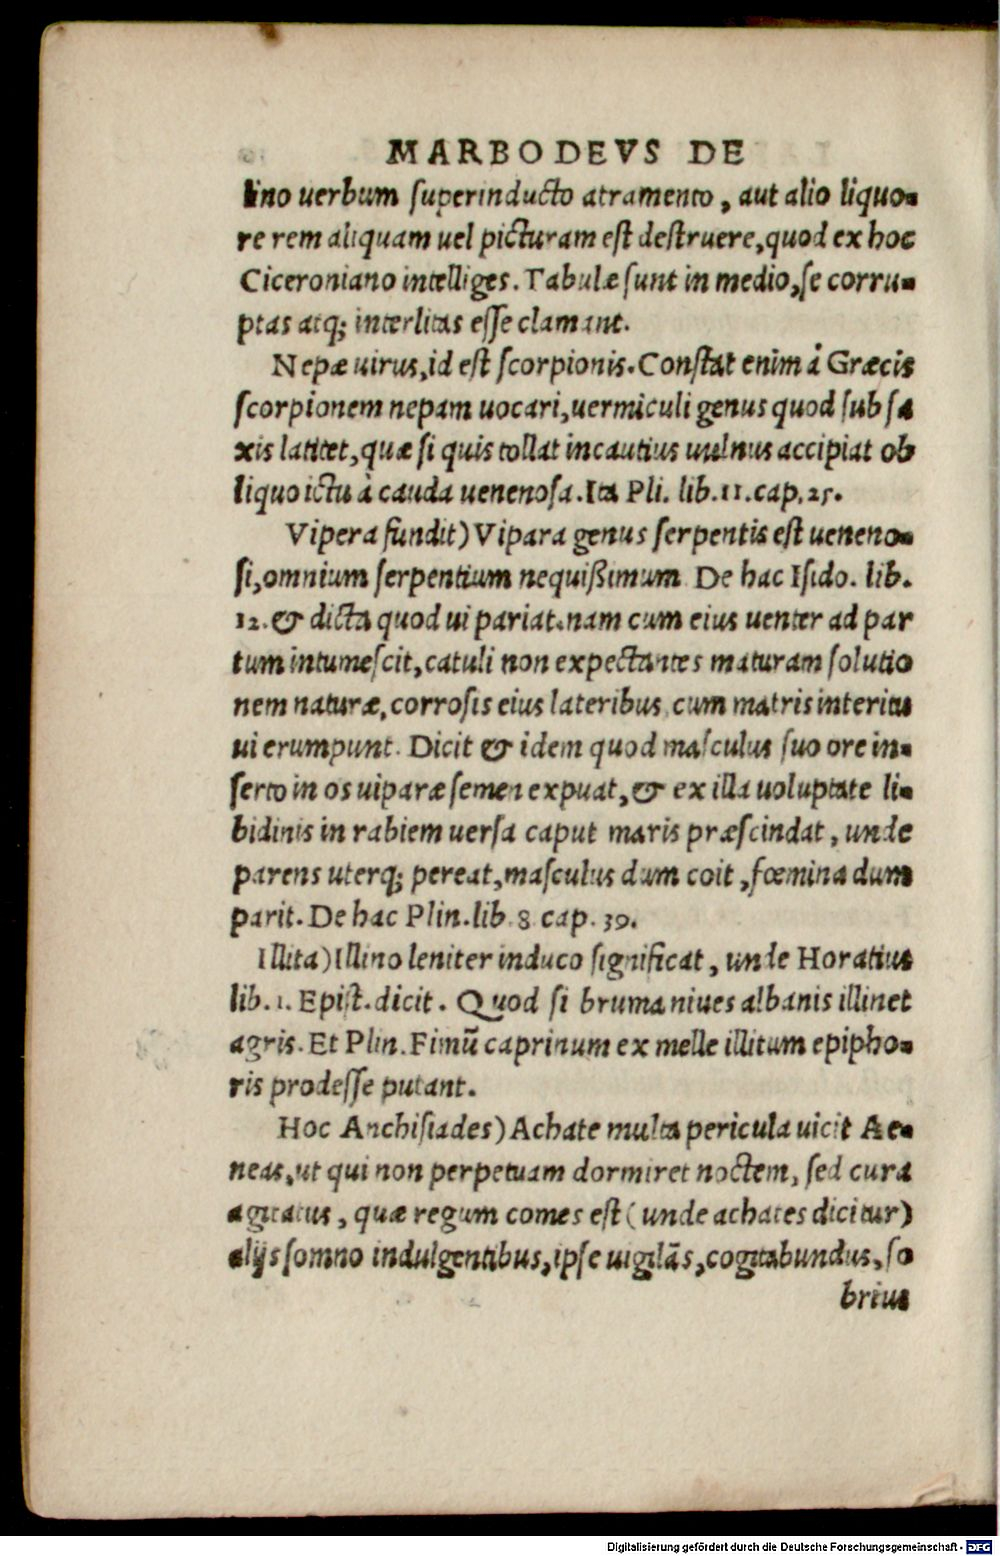 MARBODEVS DE
lino uerbum superinducto atramento, aut alio liquo-
re rem aliquam uel picturam est destruere, quod ex hoc
Ciceroniano intelliges. Tabulæ sunt in medio, se corru-
ptas atq; interlitas esse clamant.
Nepæ uirus, id est scorpionis. Constat enim à Græcis
scorpionem nepam uocari, uermiculi genus quod sub sa
xis latitet, quæ si quis tollat incautius uulnus accipiat ob
liquo ictu à cauda uenenosa. Ita Pli. lib. 11. cap. 25.
Vipera fundit) Vipara genus serpentis est ueneno-
si, omnium serpentium nequißimum De hac Isido. lib.
12. & dicta quod ui pariat. nam cum eius uenter ad par
tum intumescit, catuli non expectantes maturam solutio
nem naturæ, corrosis eius lateribus cum matris interitu
ui erumpunt. Dicit & idem quod masculus suo ore in-
serto in os uiparæ semen expuat, & ex illa uoluptate li-
bidinis in rabiem uersa caput maris præscindat, unde
parens uterq; pereat, masculus dum coit, fœmina dum
parit. De hac Plin. lib. 8 cap. 39.
Illita) Illino leniter induco significat, unde Horatius
lib. 1. Epist. dicit. Quod si bruma niues albanis illinet
agris. Et Plin. Fimũ caprinum ex melle illitum epipho-
ris prodesse putant.
Hoc Anchisiades) Achate multa pericula uicit Ae-
neas, ut qui non perpetuam dormiret noctem, sed cura
agitatus, quæ regum comes est (unde achates dicitur)
alijs somno indulgentibus, ipse uigilãs, cogitabundus, so
brius
Digitalisierung gefördert durch die Deutsche Forschungsgemeinschaft - DFG